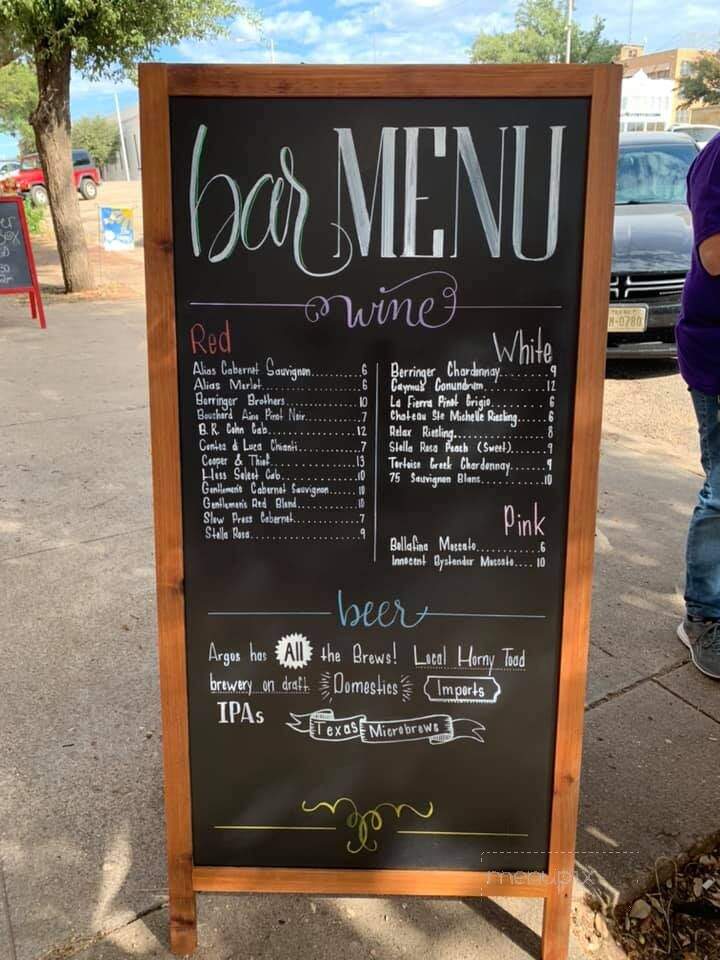 bar MENU
wine
Red
Alias Cabernet Sauvignon..........6
Alias Merlot..........6
Berringer Brothers..........10
Bouchard Aine Pinot Noir..........7
B.R. Cohn Cab..........12
Contea d Luca Chianti..........7
Cooper & Thief..........13
Hess Select Cab..........10
Gentlemen's Cabernet Sauvignon.....10
Gentlemen's Red Blend..........10
Slow Press Cabernet..........7
Stella Rosa..........9
White
Berringer Chardonnay..........9
Caymus Conundrum..........12
La Fierra Pinot Grigio..........6
Chateau Ste Michelle Riesling.....6
Relax Riesling..........8
Stella Rosa Peach (Sweet).....9
Tortoise Creek Chardonnay.....9
75 Sauvignon Blanc..........10
Pink
Bellafina Moscato..........6
Innocent Bystander Moscato....10
beer
Argos has All the Brews! Local Horny Toad
brewery on draft Domestics Imports
IPAs Texas Microbrews
menupix